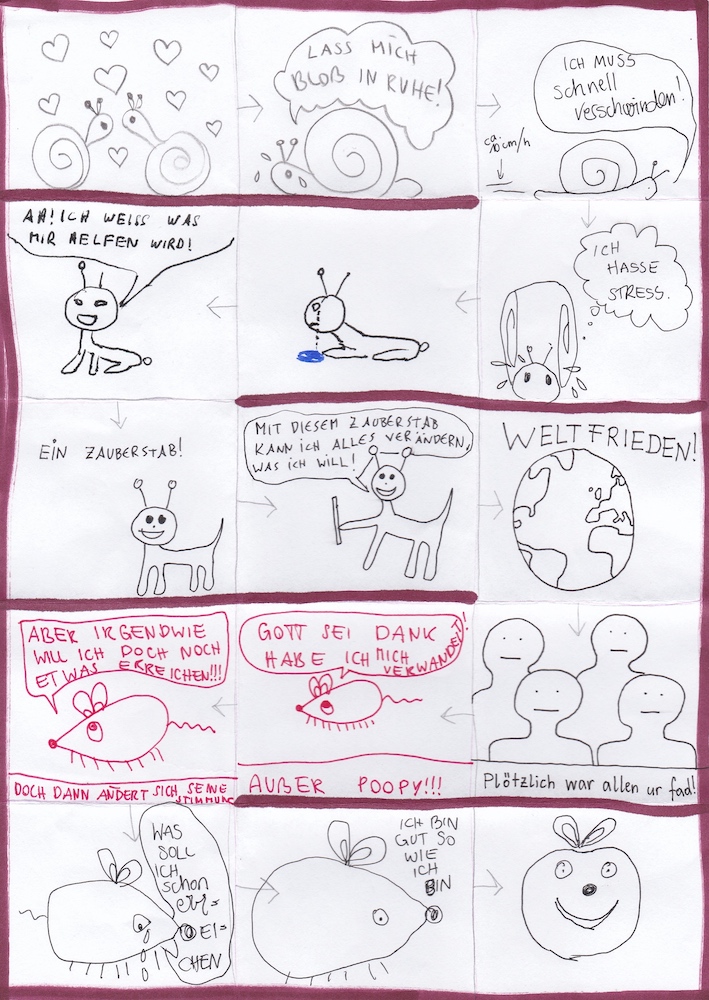 LASS MICH
BLOß IN RUHE!
ICH MUSS
schnell
verschwinden!
ca.
10cm/h
ICH
HASSE
STRESS.
AH! ICH WEISS WAS
MIR HELFEN WIRD!
EIN ZAUBERSTAB!
MIT DIESEM ZAUBERSTAB
KANN ICH ALLES VERÄNDERN,
WAS ICH WILL!
WELTFRIEDEN!
Plötzlich war allen ur fad!
GOTT SEI DANK
HABE ICH MICH
VERWANDELT!
AUßER POOPY!!!
ABER IRGENDWIE
WILL ICH DOCH NOCH
ETWAS ERREICHEN!!!
DOCH DANN ÄNDERT SICH SEINE
STIMMUNG
WAS
SOLL
ICH
schon
err=
EI=
CHEN
ICH BIN
GUT SO
WIE
ICH
BIN